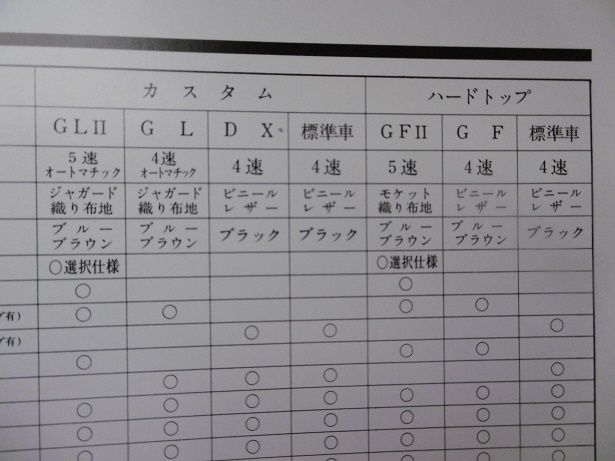 カスタム ハードトップ
GLII GL DX* 標準車 GFII GF 標準車
5速 4速 4速 4速 5速 4速 4速
オートマチック オートマチック
ジャガード ジャガード ビニール ビニール モケット ビニール ビニール
織り布地 織り布地 レザー レザー 織り布地 レザー レザー
ブルー ブルー ブラック ブラック ブルー ブルー ブラック
ブラウン ブラウン ブラウン ブラウン
○選択仕様 ○選択仕様
○ ○
有) ○ ○ ○ ○
有) ○ ○ ○
○ ○ ○
○ ○ ○ ○
○ ○ ○ ○ ○ ○ ○
○ ○ ○ ○ ○ ○ ○
○ ○ ○ ○ ○ ○ ○
○ ○ ○ ○ ○ ○